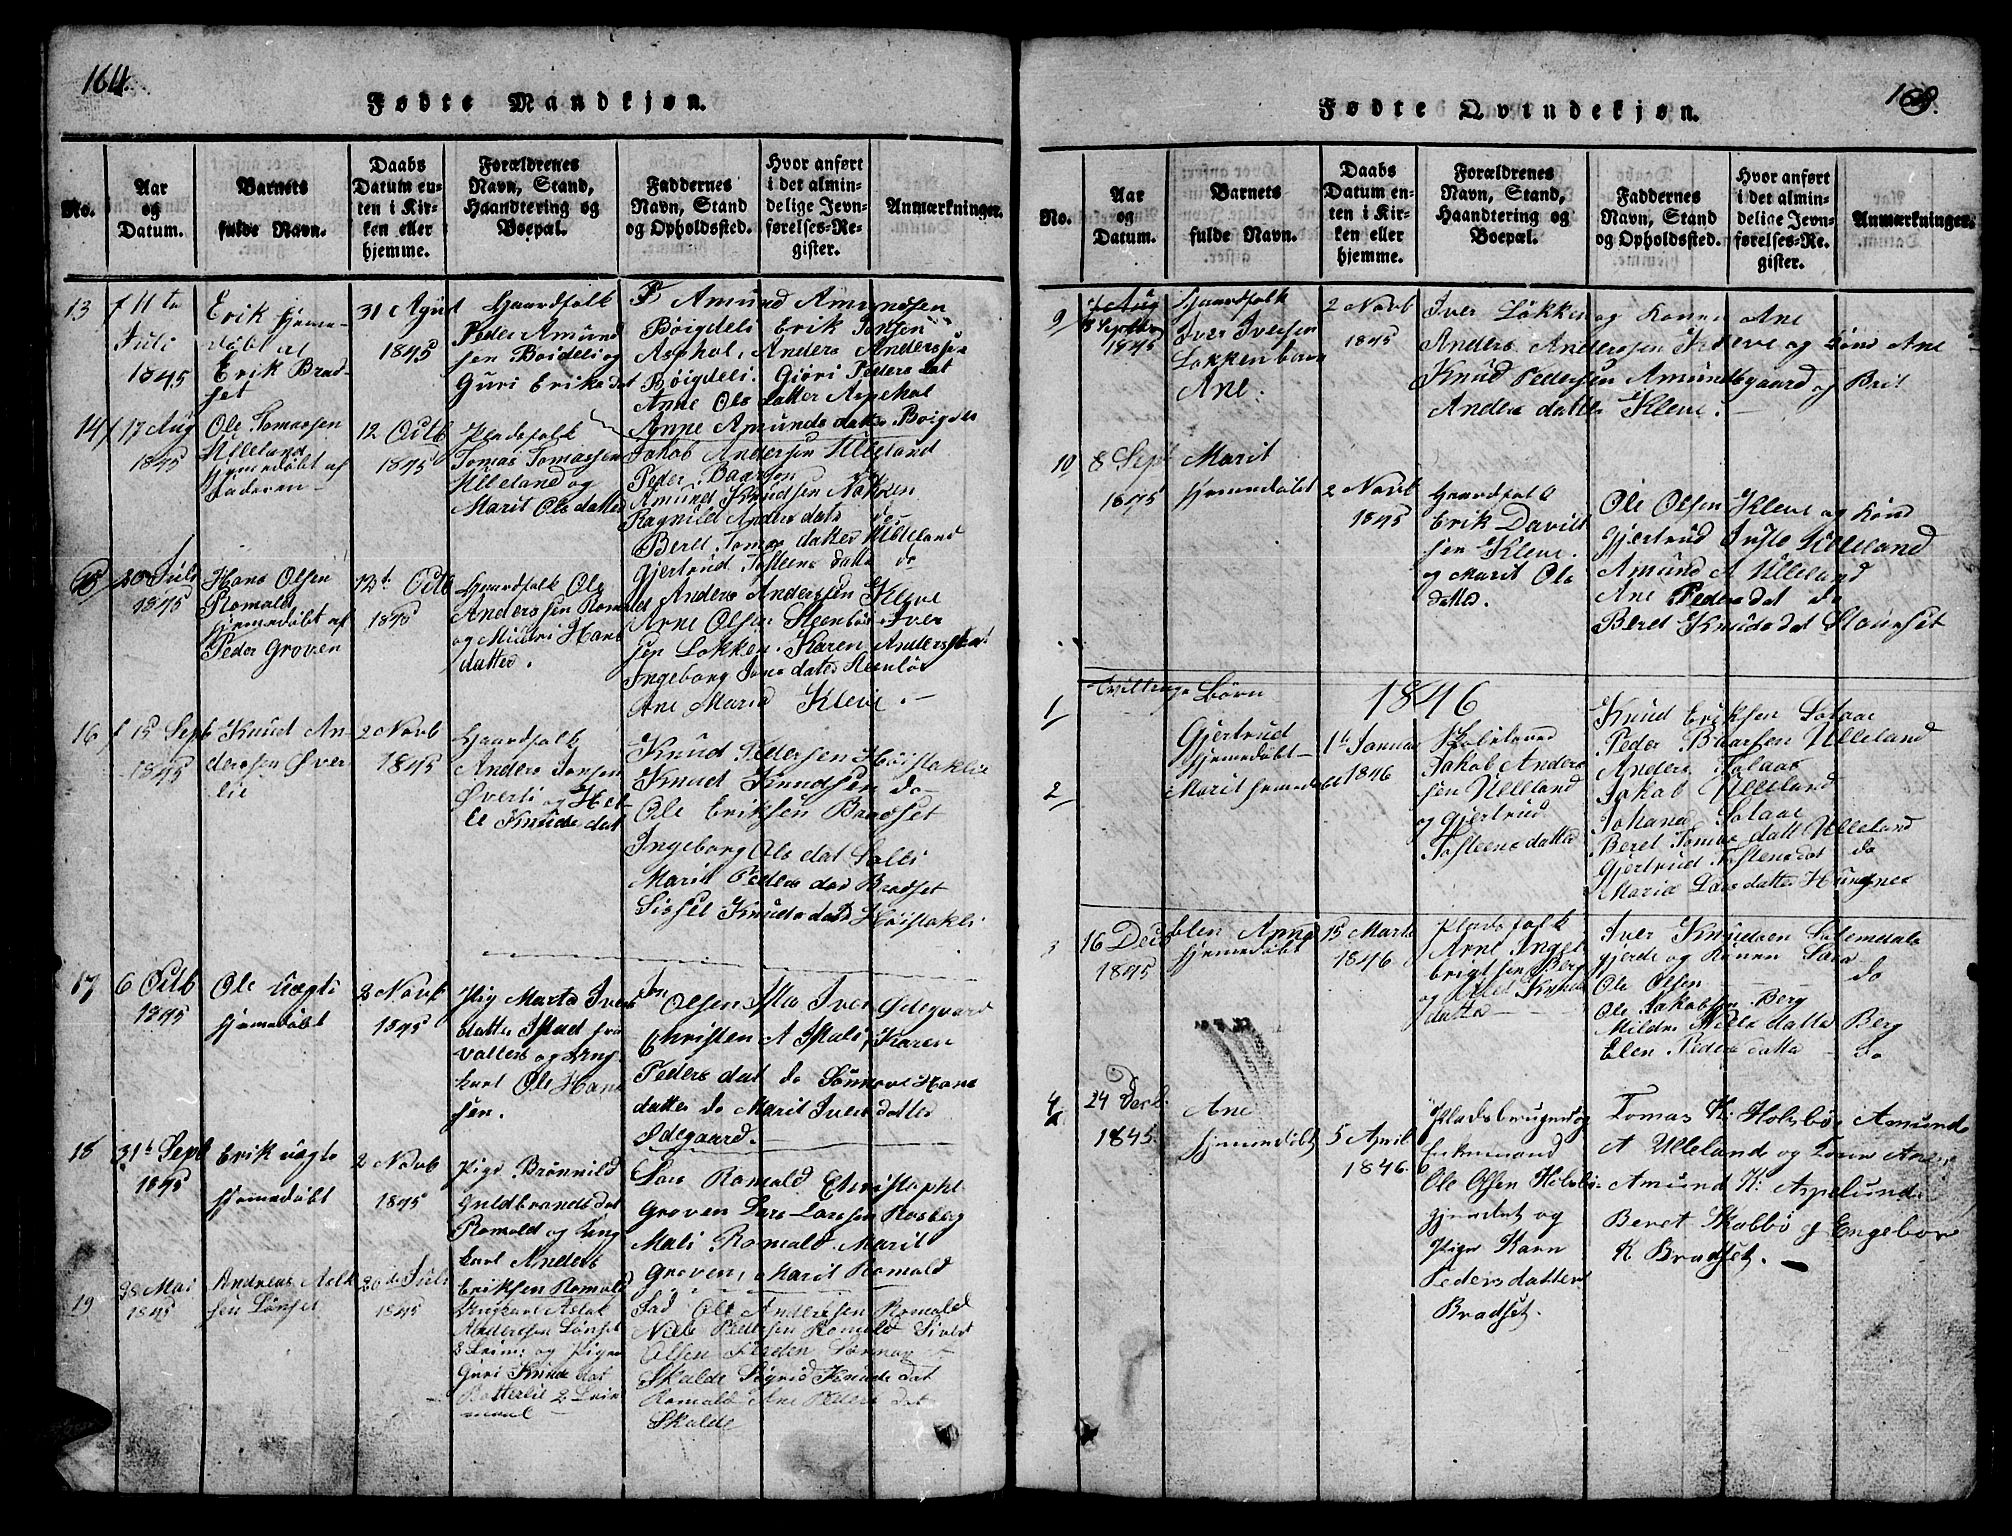 164.
Fødte Mandkjøn.
No.
Aar
og
Datum.
Barnets
fulde Navn.
Daabs
Datum en-
ten i Kir-
ken eller
hjemme.
Forældrenes
Navn, Stand,
Haandtering og
Boepæl.
Faddernes
Navn, Stand
og Opholdssted.
Hvor anført
i det almin-
delige Jevn-
førelses-Re-
gister.
Anmærkninger.
13
11te
Juli
1845
Erik hjeme-
døbt af
Erik Brad-
set
31 Agust
1845
Gaardfolk
Peder Amund
sen Boideli og
Guri Eriks dat
F Amund Amundsen
Bøigdeli Erik Jonsen
Asphol, Anders Anderssen
Bøigdeli. Giøri Peders dat
Anne Ols datter Asphol
Anne Amunds datter Boigdeli
14
17 Aug
1845
Ole Tomassen
Ulleland
hjemedøbt af
Faderen
12 Octb
1845
Pladsfolk
Tomas Tomassen
Ulleland og
Marit Ols datter
Jakob Andersen Ulleland
Peder Baarsen do
Amund Knudsen Nakken
Ragnild Anders dats do
Beret Tomas datter Ulleland
Gjertrud Tosteens datte do
15
20 Juli
1845
Hans Olsen
Romald
hjemedøbt af
Peder Groven
12t. Octb
1845
Gaardfolk Ole
Anderssen Romald
og Mildri Hans
datter.
Anders Anderssen Kleve
Arne Olsen Steenløs Iver
sen Løkken. Karen Anders dat
Ingeborg Jons datter Steenløs
Ane Maria Kleve.
16
15 Sept
1845
Knud An-
derssen Øver
lie
2 Novb
1845
Gaardfolk
Anders Jonsen
Øverli og Hel-
le Knuds dat
Knud Pedersen Høistakli
Knud Knudsen do
Ole Eriksen Bradset
Ingeborg Ols dat Solli
Marit Peders dat Bradset
Sissel Knuds dat Høistakli
17
6 Octb
1845
Ole Uægte
hjemedøbt
2 Novb
1845
Pig Marta Ivers
datter Istad fra
Valters og Ung-
karl Ole Hans
sen.
Jon Olsen Ista Iver Ødegaard
Christen A Mali, Karen
Peders dat do Sønnøve Hans
datter do Marit Ivers datter
Ødegaard.
18
31t Sept
1845
Erik uægte
hjemedøbt
2 Novb
1845
Pige Brønnild
Guldbrands dat
Romald og Ung
karl Anders
Eriksen Romald
Lars Romald Christopher
Groven Lars Larssen Rosberg
Mali Romald Marit
Groven, Marit Romald
19
28 Mai
1845
Andreas Aslk
sen Lønset
20de Juli
1845
Ungkarl Aslak
Anderssen Lønset
2 Leirm: og Pigen
Guri Knuds dat
Rotterlie 2 Leir
maal
Fad Ole Anderssen Romald
Niels Pedersen Romald Sivert
Olsen Fladen
Skalde Sigrid Knuds dat
Romald Ane Peders dat
Skalde
169.
Fødte Qvindekjøn.
No.
Aar
og
Datum.
Barnets
fulde Navn.
Daabs
Datum en-
ten i Kir-
ken eller
hjemme.
Forældrenes
Navn, Stand,
Haandtering og
Boepæl.
Faddernes
Navn, Stand
og Opholdssted.
Hvor anført
i det almin-
delige Jevn-
førelses-Re-
gister.
Anmærkninger.
9
1845
Gaardfolk
Iver Iversen
Løkken barn
Ane.
2 Novb
1845
Iver Løkken og Konne Ane
Anders Anderssen Kleve og Kone Ane
Knud Pedersen Amundsgaard og Brit
Anders datter Kleve.
10
8 Sept
1845
Marit
hjemedøbt
2 Novb
1845
Gaardfolk
Erik David
sen Kleve.
og Marit Ols
datter.
Ole Olsen Kleve og Kone
Gjertrud Juste Ulleland
Amund A Ulleland
Ane Peders dat do
Beret Knuds dat Stounset
Tvillinge Børn
1846
1
Gjertrud
hjemedøbt
2
Marit hjemedøbt
1t Januar
1846
Jakob Anders
sen Ulleland
og Gjertrud
Tosteens datter
Knud Eriksen Solaae
Peder Baarsen Ulleland
Anders Solaae
Jakob Ulleland
Johana Solaae
Beret Tomas datt Ulleland
Gjertrud Tostens dat do
Maria Lars datter Hungnes
3
16 Decb
1845
Elen Anna
hjemedøbt
15 Marts
1846
Pladsfolk
Arne Inge
brigtsen Berg
og Knuds
datter
Iver Knudsen Solemdals
gjerde og Konen Sara
Ole Olsen do
Ole Jakobsen Berg
Mildri Niels datte Berg
Elen Peders datte do
4
24 Decb.
1845
Ane
hjemedøbt
5 April
1846.
Pladsbruger og
Enkemand
Ole Olsen Holsbø-
gjerdet og
Pige Karn
Peders datter
Bradset.
Tomas K: Holsbø. Amund
A Ulleland og Kone Ane
Amund K: Aspelund
Beret Skabbø og Engebor
K Bradset.